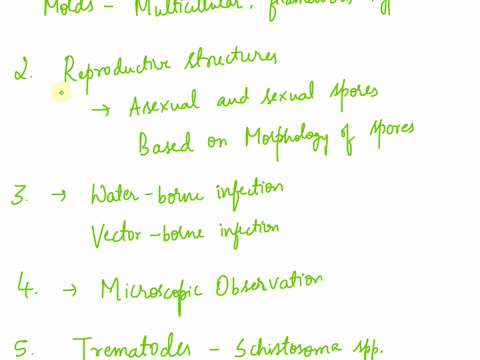 Molds - Multicellular,
2. Reproductive structures
→ Asexual and sexual spores
Based on Morphology of spores
3. → Water-borne infection
Vector-borne infection
4. → Microscopic Observation
5. Trematodes - Schistosoma spp.